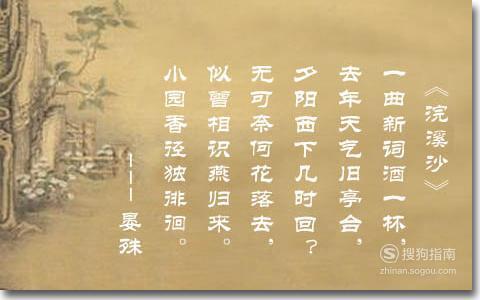 《浣溪沙》
一曲新词酒一杯，
去年天气旧亭台，
夕阳西下几时回？
无可奈何花落去，
似曾相识燕归来。
小园香径独徘徊。
———晏殊
搜狗指南
zhinan.sogou.com